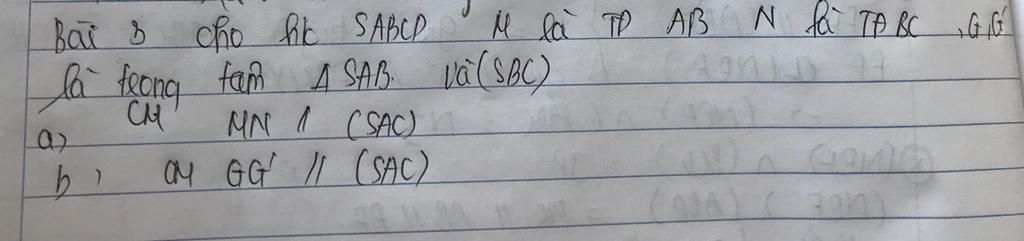 Bài 3 cho hk SABCD M là TĐ AB N là TĐ BC , G, G'
là trọng tâm Δ SAB. Và (SBC)
a, CM MN // (SAC)
b, CM GG' // (SAC)